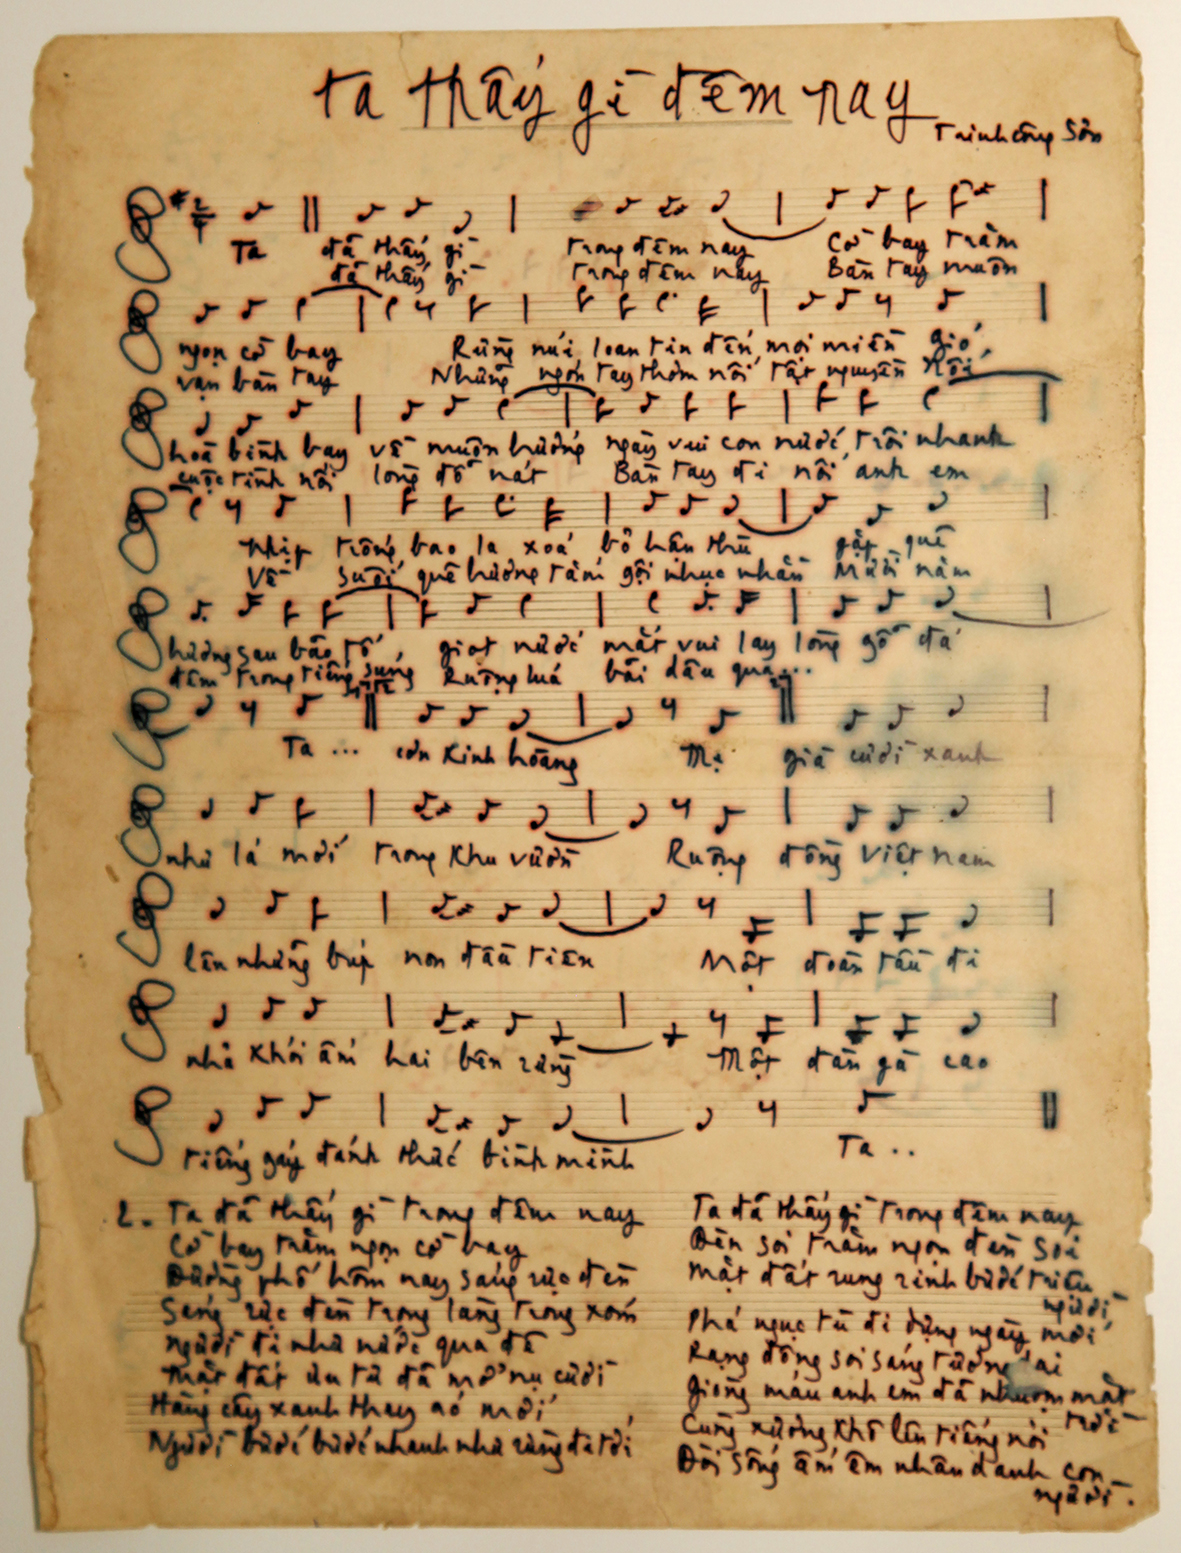 Ta thấy gì đêm nay
Trịnh Công Sơn
2/4
Ta đã thấy gì trong đêm nay Cờ bay trăm
đã thấy gì trong đêm nay Bàn tay muôn
ngọn cờ bay Rừng núi loan tin đến mọi miền gió
vạn bàn tay Những ngón tay thơm nối tật nguyền Nối
hoà bình bay về muôn hướng ngày vui con nước trôi nhanh
cuộc tình nối lòng đổ nát Bàn tay đi nối anh em
Nhịp trống bao la xoá bỏ hận thù gặp quê
Về suối quê hương tắm gội nhục nhằn Mười năm
hương sau bão tố, giọt nước mắt vui lay lòng gỗ đá
đêm trong tiếng súng Ruộng lúa bãi dâu qua...
Ta ... cơn kinh hoàng Mẹ già cười xanh
như lá mới trong khu vườn Ruộng đồng Việt nam
lên những búp non đầu tiên Một đoàn tàu đi
nhả khói ấm hai bên rừng Một đàn gà cao
tiếng gáy đánh thức bình minh Ta ..
2. Ta đã thấy gì trong đêm nay
Cờ bay trăm ngọn cờ bay
Đường phố hôm nay sáng rực đèn
Sáng rực đèn trong làng trong xóm
người đi như nước qua đê
Mặt đất ưu tư đã mở nụ cười
Hàng cây xanh thay áo mới
Người bước bước nhanh như rừng đi tới
Ta đã thấy gì trong đêm nay
Đèn soi trăm ngọn đèn soi
Mặt đất rung rinh bước triệu
người
Phá ngục tù đi dựng ngày mới
Rạng đông soi sáng tương lai
Giòng máu anh em đã nhuộm mặt
trời
Cùng xương khô lên tiếng nói
Đời sống ấm êm nhân danh con
người.